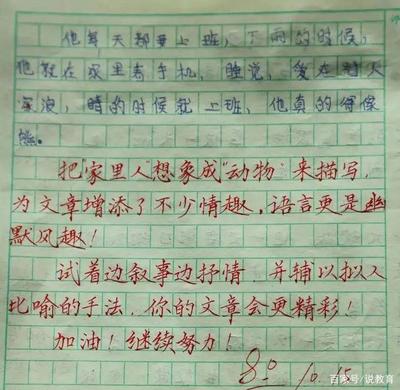 他每天都要上班，下雨的时候，
他就在家里看手机，睡觉，爱在
深浪，晴的时候就上班，他真的得像
熊。
把"家里人"想象成"动物"来描写，
为文章增添了不少情趣，语言更是幽
默风趣！
试着边叙事边抒情，并辅以拟人
比喻的手法，你的文章会更精彩！
加油！继续努力！
80 10.15
百家号/说教育